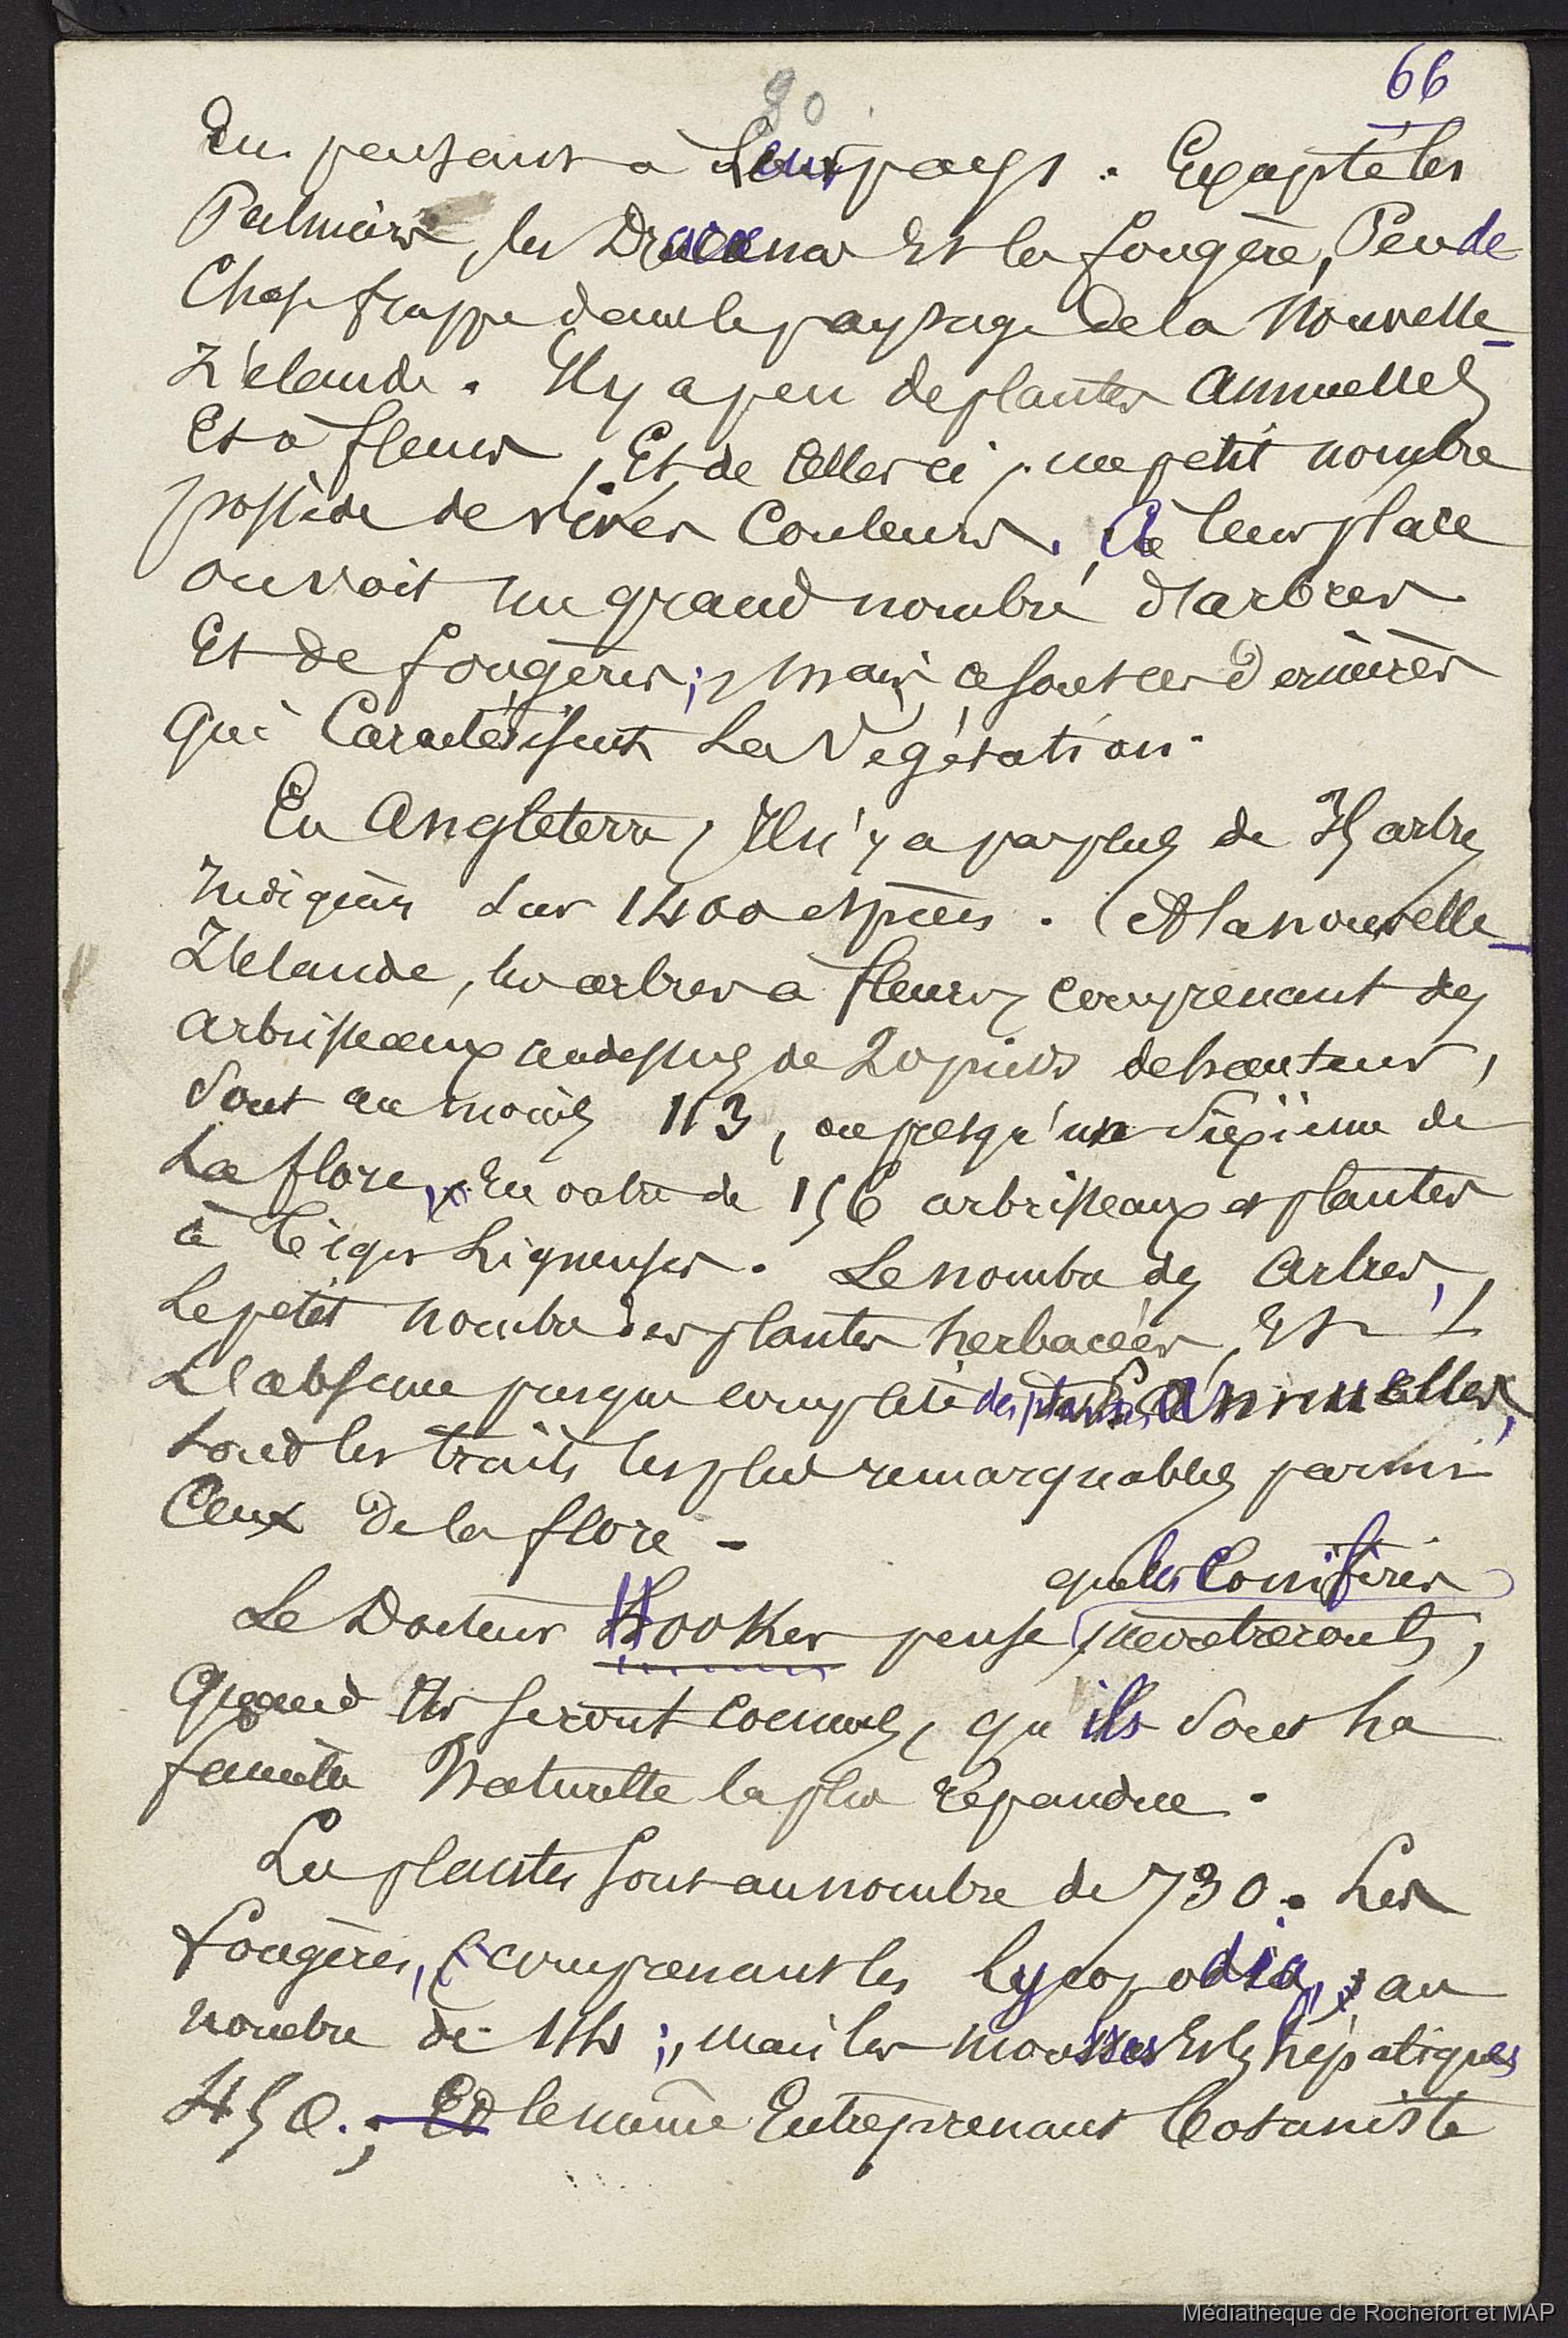 66
80
En pensant à Leur pays. Excepté les
Palmiers, les Dracæna Et la fougère, Peu de
Chose frappe dans le paysage de la Nouvelle-
Zélande. Il y a peu de plantes annuelles
Et à fleurs, Et de celles ci, un petit nombre
possède de vives Couleurs. A leur place
on voit un grand nombre d'arbres
Et de fougères; mais ce sont ces dernières
qui Caractérisent La Végétation.
En Angleterre, Il n'y a pas plus de 35 arbres
Indigènes sur 1400 espèces. A la nouvelle-
Zélande, les arbres à fleurs, comprenant des
arbrisseaux au dessus de 20 pieds de hauteur,
sont au moins 113, ou presqu'un Sixième de
La flore, En outre de 156 arbrisseaux et plantes
à Tiges Ligneuses. Le nombre des Arbres,
Le petit nombre des plantes herbacées, Et
L'absence presque complète des plantes Annuelles,
sont les traits les plus remarquables parmi
Ceux de la flore -
que les Conifères
Le Docteur Hooker pense
Quand Ils seront connus, qu'ils sont La
famille Naturelle la plus répandue.
Les plantes sont au nombre de 730. Les
fougères, comprenant les Lycopodia, au
nombre de 114; mais les mousses Et les hépatiques
450.; Et le même Entreprenant Botaniste
Médiathèque de Rochefort et MAP